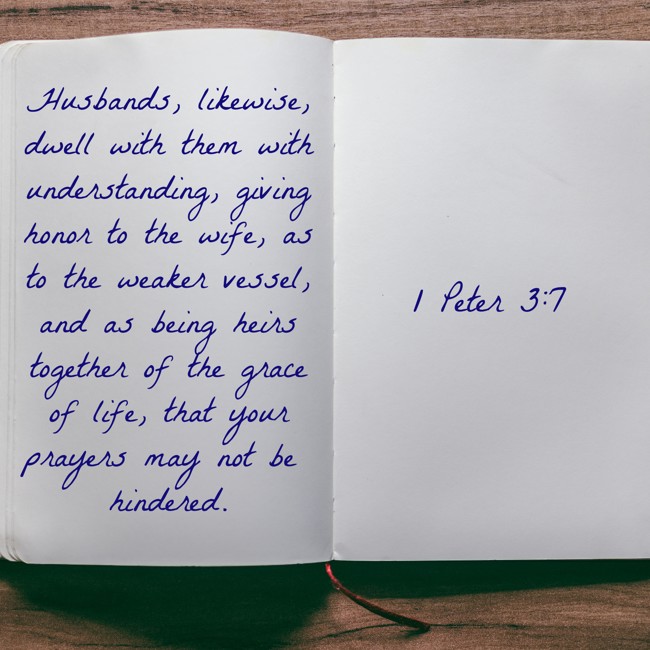 Husbands, likewise,
dwell with them with
understanding, giving
honor to the wife, as
to the weaker vessel,
and as being heirs
together of the grace
of life, that your
prayers may not be
hindered.
1 Peter 3:7